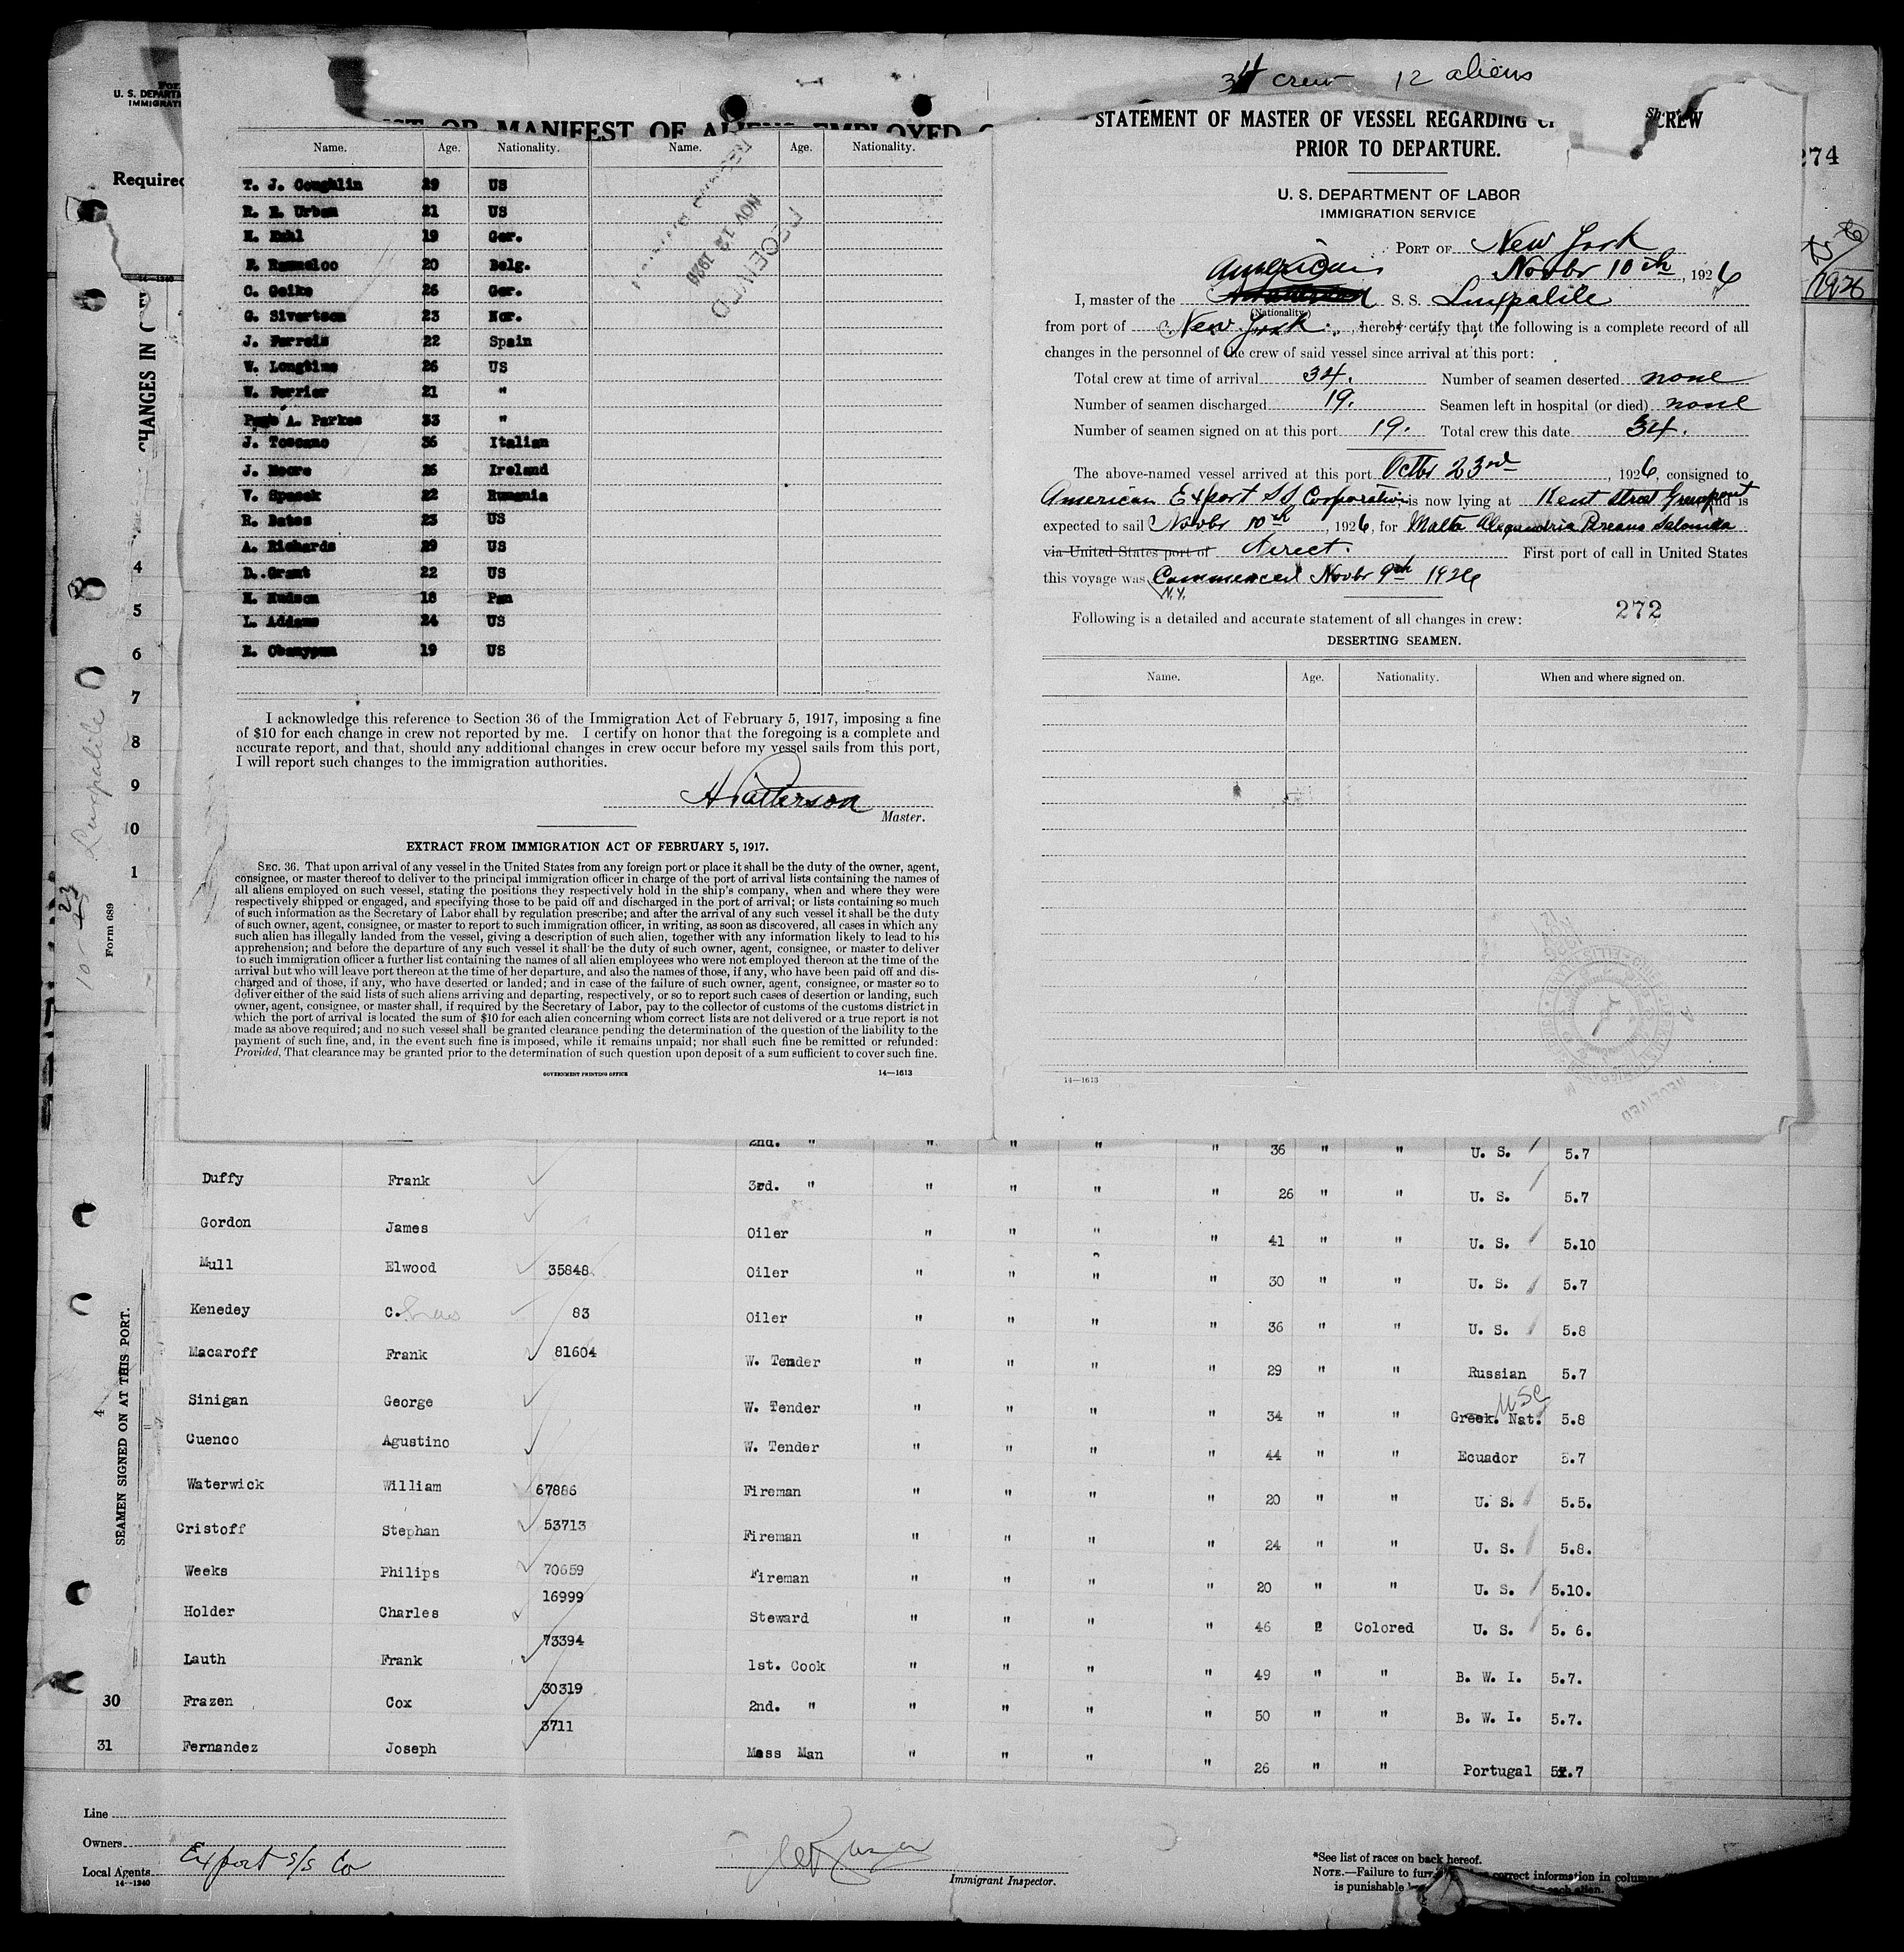 34 crew 12 aliens
FOR
U. S. DEPART
IMMIGRATI
Required
LIST OR MANIFEST OF ALIENS EMPLOYED O
274
1926
CHANGES IN C
14—1240
4
5
6
7
8
9
10
1
Form 689
SEAMEN SIGNED ON AT THIS PORT.
4
Name. Age. Nationality. Name. Age. Nationality.
T. J. Coughlin 29 US
R. E. Urban 21 US
H. Kuhl 19 Ger.
20 Belg.
C. Geike 26 Ger.
G. Sivertsen 23 Nor.
J. Ferreis 22 Spain
W. Longtime 26 US
W. Ferrier 21 "
A. Parkes 33 "
J. Toscano 36 Italian
J. Moore 26 Ireland
V. Spasek 22 Rumania
R. Bates 23 US
A. Richards 29 US
D. Grant 22 US
H. Hudson 18 Pan
L. Addams 24 US
E. 19 US
RECEIVED
NOV 12 1926
I acknowledge this reference to Section 36 of the Immigration Act of February 5, 1917, imposing a fine
of $10 for each change in crew not reported by me. I certify on honor that the foregoing is a complete and
accurate report, and that, should any additional changes in crew occur before my vessel sails from this port,
I will report such changes to the immigration authorities.
H Patterson
Master.
EXTRACT FROM IMMIGRATION ACT OF FEBRUARY 5, 1917.
SEC. 36. That upon arrival of any vessel in the United States from any foreign port or place it shall be the duty of the owner, agent,
consignee, or master thereof to deliver to the principal immigration officer in charge of the port of arrival lists containing the names of
all aliens employed on such vessel, stating the positions they respectively hold in the ship's company, when and where they were
respectively shipped or engaged, and specifying those to be paid off and discharged in the port of arrival; or lists containing so much
of such information as the Secretary of Labor shall by regulation prescribe; and after the arrival of any such vessel it shall be the duty
of such owner, agent, consignee, or master to report to such immigration officer, in writing, as soon as discovered, all cases in which any
such alien has illegally landed from the vessel, giving a description of such alien, together with any information likely to lead to his
apprehension; and before the departure of any such vessel it shall be the duty of such owner, agent, consignee, or master to deliver
to such immigration officer a further list containing the names of all alien employees who were not employed thereon at the time of the
arrival but who will leave port thereon at the time of her departure, and also the names of those, if any, who have been paid off and dis-
charged and of those, if any, who have deserted or landed; and in case of the failure of such owner, agent, consignee, or master so to
deliver either of the said lists of such aliens arriving and departing, respectively, or so to report such cases of desertion or landing, such
owner, agent, consignee, or master shall, if required by the Secretary of Labor, pay to the collector of customs of the customs district in
which the port of arrival is located the sum of $10 for each alien concerning whom correct lists are not delivered or a true report is not
made as above required; and no such vessel shall be granted clearance pending the determination of the question of the liability to the
payment of such fine, and, in the event such fine is imposed, while it remains unpaid; nor shall such fine be remitted or refunded:
Provided, That clearance may be granted prior to the determination of such question upon deposit of a sum sufficient to cover such fine.
GOVERNMENT PRINTING OFFICE 14—1613
STATEMENT OF MASTER OF VESSEL REGARDING CREW
PRIOR TO DEPARTURE.
U. S. DEPARTMENT OF LABOR
IMMIGRATION SERVICE
PORT OF New York
Novbr 10th, 1926
American
I, master of the S. S. Luxpalile
(Nationality.)
from port of New York, hereby certify that the following is a complete record of all
changes in the personnel of the crew of said vessel since arrival at this port:
Total crew at time of arrival 34. Number of seamen deserted none
Number of seamen discharged 19. Seamen left in hospital (or died) none
Number of seamen signed on at this port 19. Total crew this date 34.
The above-named vessel arrived at this port Octbr 23rd, 1926, consigned to
American Export SS Corporation, is now lying at Kent Street Greenpoint and is
expected to sail Novbr 10th, 1926, for Malta Alexandria Pireaus Salonica
via United States port of direct. First port of call in United States
this voyage was Commenced Novbr 9th 1926
N.Y.
Following is a detailed and accurate statement of all changes in crew:
272
DESERTING SEAMEN.
Name. Age. Nationality. When and where signed on.
14—1613
RECEIVED
2nd. " " " " " 36 " " U. S. 5.7
Duffy Frank 3rd. " " " " " 26 " " U. S. 5.7
Gordon James Oiler " " " " 41 " " U. S. 5.10
Mull Elwood 35848 Oiler " " " " 30 " " U. S. 5.7
Kenedey C. 83 Oiler " " " " 36 " " U. S. 5.8
Macaroff Frank 81604 W. Tender " " " " 29 " " Russian 5.7
USC
Sinigan George W. Tender " " " " 34 " " Greek. Nat. 5.8
Cuenco Agustino W. Tender " " " " 44 " " Ecuador 5.7
Waterwick William 67886 Fireman " " " " 20 " " U. S. 5.5.
Cristoff Stephan 53713 Fireman " " " " 24 " " U. S. 5.8.
Weeks Philips 70659 Fireman " " " " 20 " " U. S. 5.10.
Holder Charles 16999 Steward " " " " 46 " Colored U. S. 5. 6.
Lauth Frank 73394 1st. Cook " " " " 49 " " B. W. I. 5.7.
30 Frazen Cox 30319 2nd. " " " " " 50 " " B. W. I. 5.7.
31 Fernandez Joseph 3711 Mess Man " " " " 26 " " Portugal 5.7
Line
Owners
Local Agents Export S/S Co
14—1240
Immigrant Inspector.
*See list of races on back hereof.
NOTE.—Failure to fur correct information in colum
is punishable each alien.